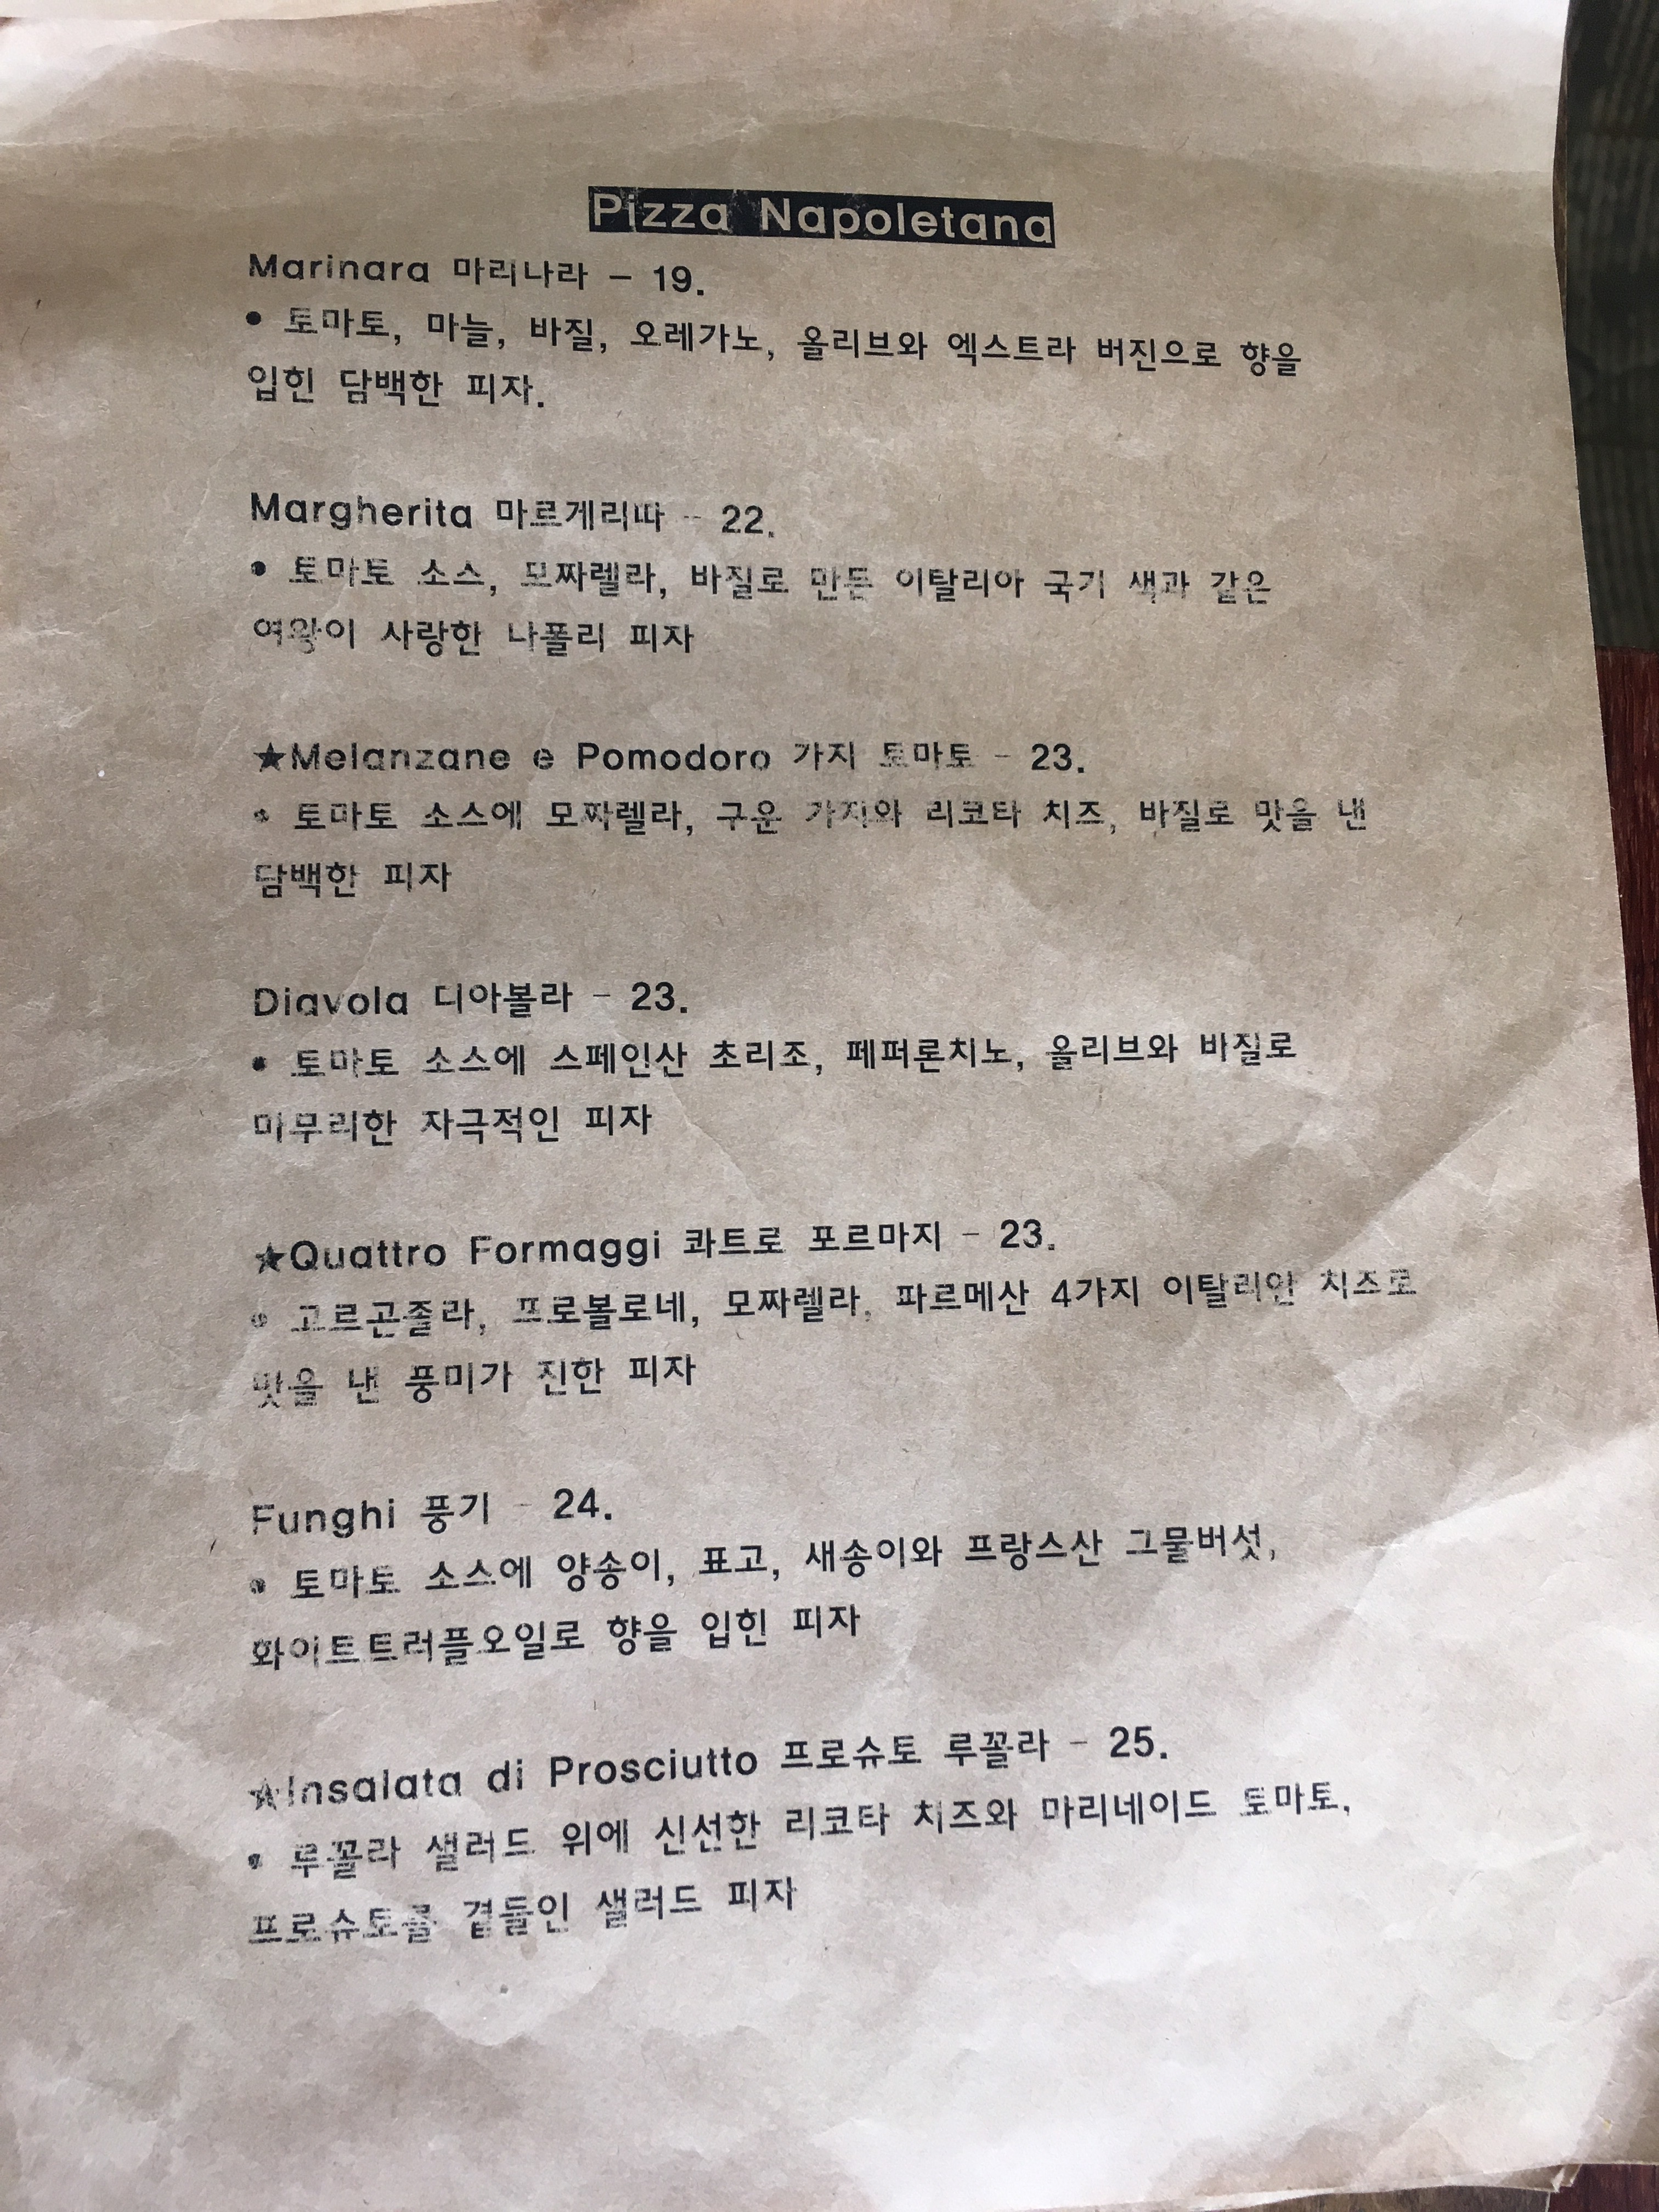 Pizza Napoletana
Marinara 마리나라 – 19.
• 토마토, 마늘, 바질, 오레가노, 올리브와 엑스트라 버진으로 향을
입힌 담백한 피자.
Margherita 마르게리따 - 22.
• 토마토 소스, 모짜렐라, 바질로 만든 이탈리아 국기 색과 같은
여왕이 사랑한 나폴리 피자
★Melanzane e Pomodoro 가지 토마토 - 23.
• 토마토 소스에 모짜렐라, 구운 가지와 리코타 치즈, 바질로 맛을 낸
담백한 피자
Diavola 디아볼라 - 23.
• 토마토 소스에 스페인산 초리조, 페퍼론치노, 올리브와 바질로
마무리한 자극적인 피자
★Quattro Formaggi 콰트로 포르마지 - 23.
• 고르곤졸라, 프로볼로네, 모짜렐라, 파르메산 4가지 이탈리안 치즈로
맛을 낸 풍미가 진한 피자
Funghi 풍기 - 24.
• 토마토 소스에 양송이, 표고, 새송이와 프랑스산 그물버섯,
화이트트러플오일로 향을 입힌 피자
★Insalata di Prosciutto 프로슈토 루꼴라 - 25.
• 루꼴라 샐러드 위에 신선한 리코타 치즈와 마리네이드 토마토,
프로슈토를 곁들인 샐러드 피자